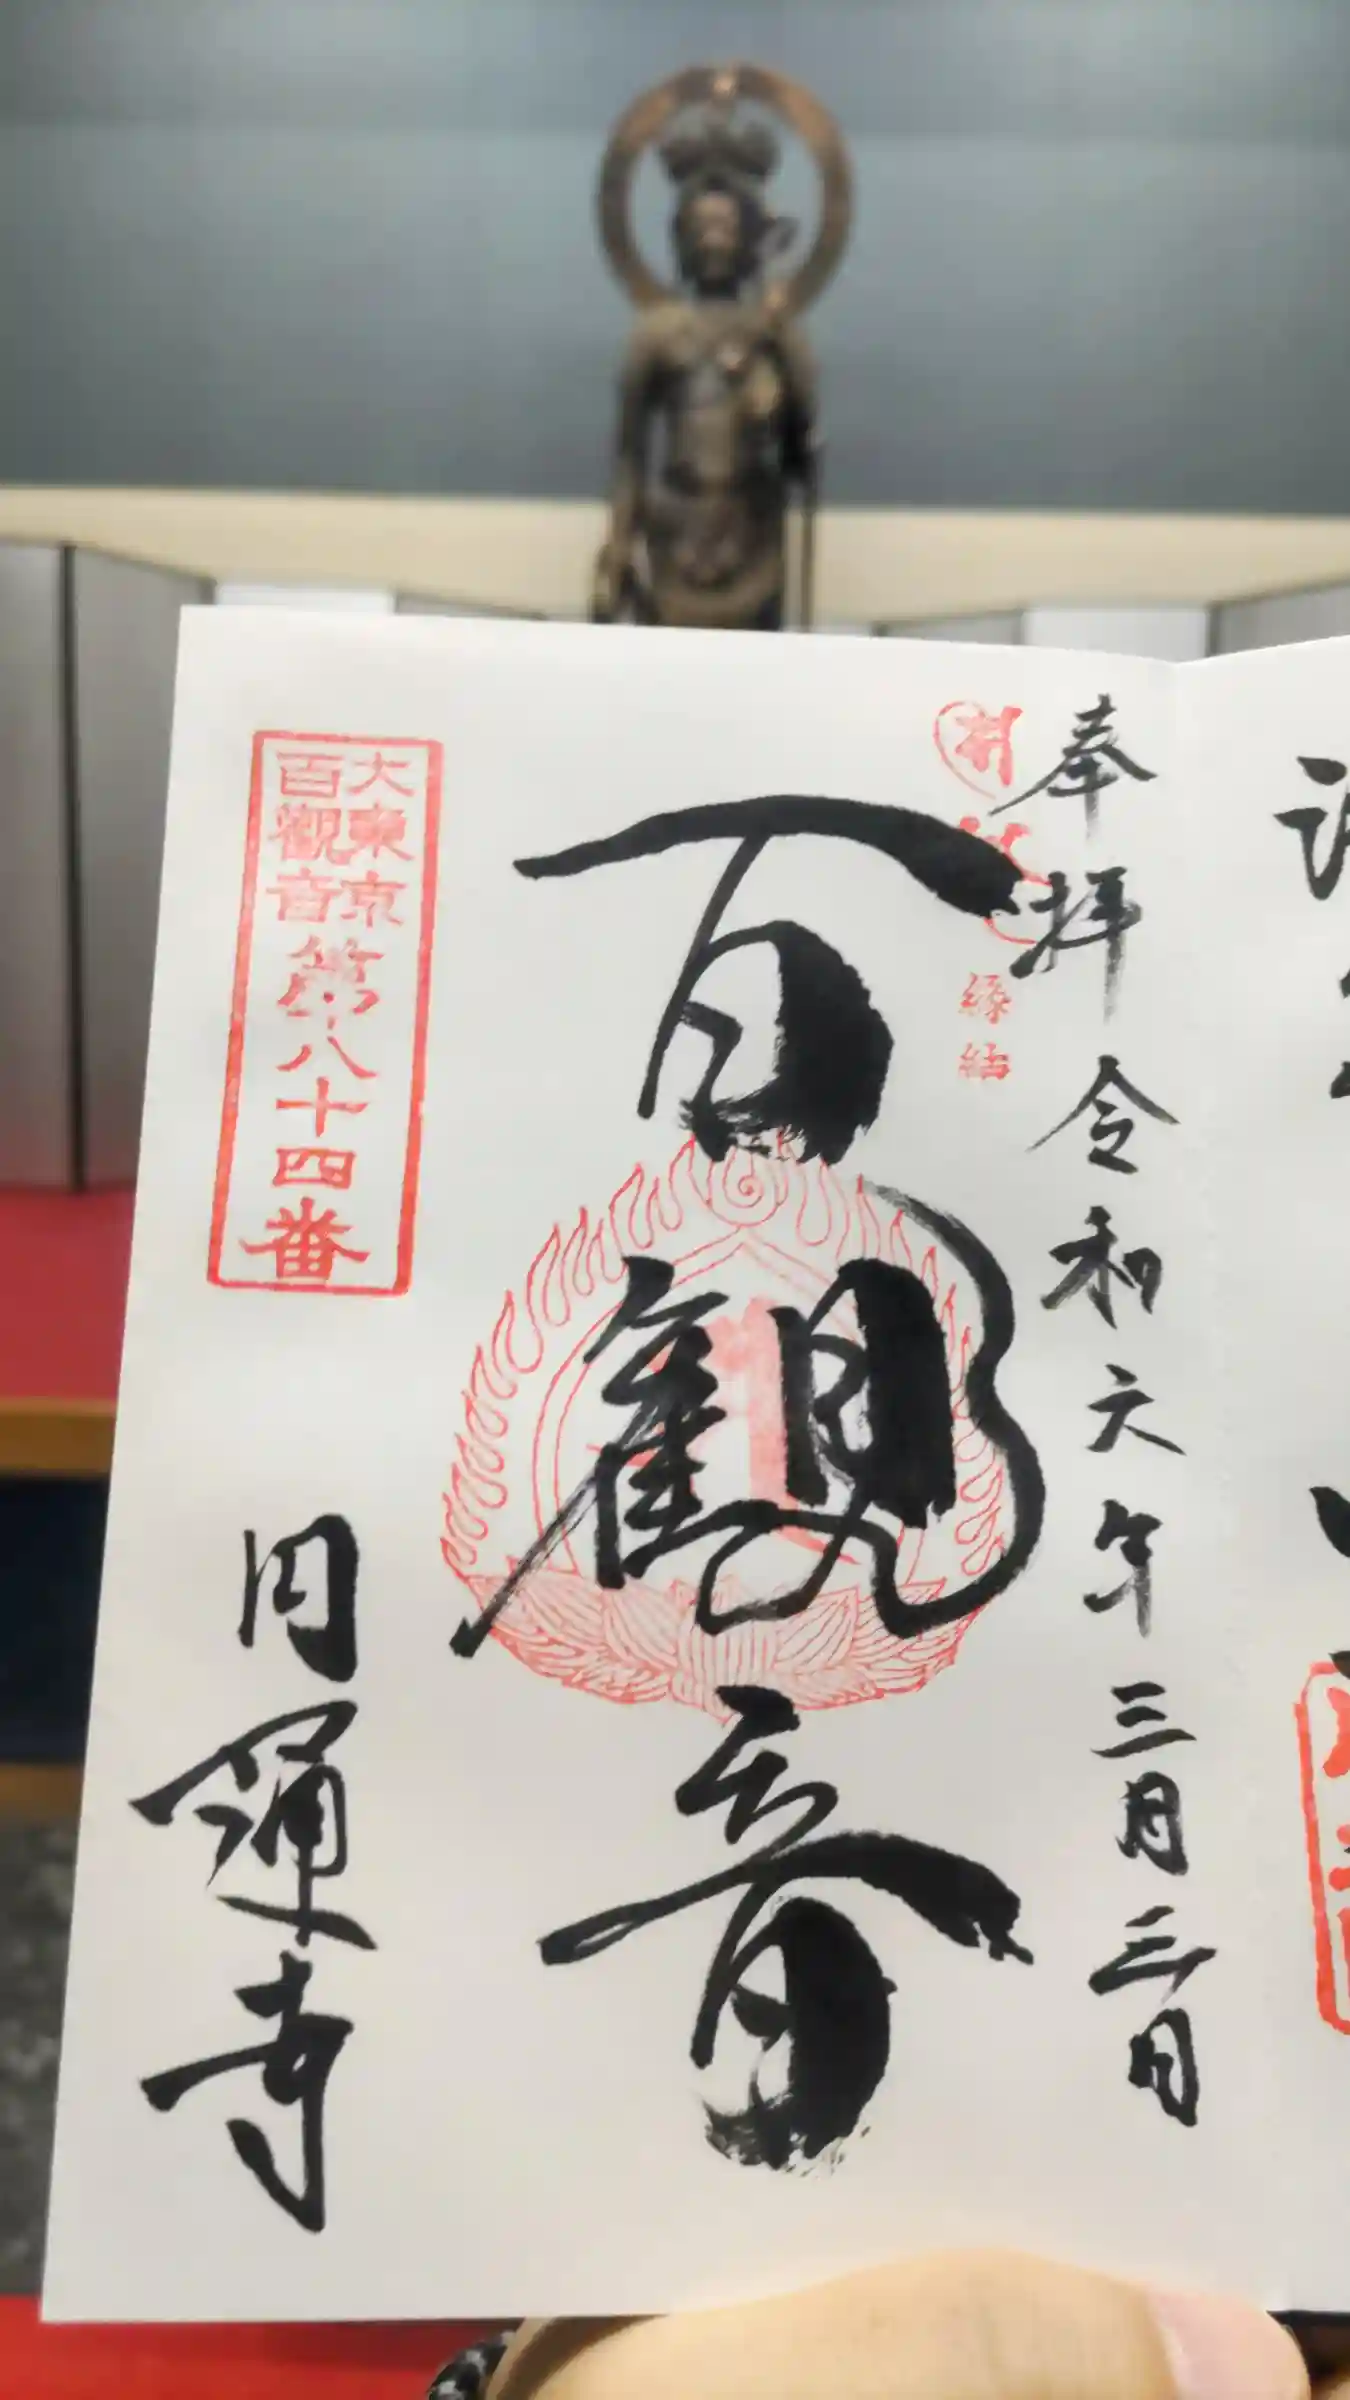 奉拝 令和六年三月三日
縁結
百觀音
大東京
百觀音
第八十四番
円通寺